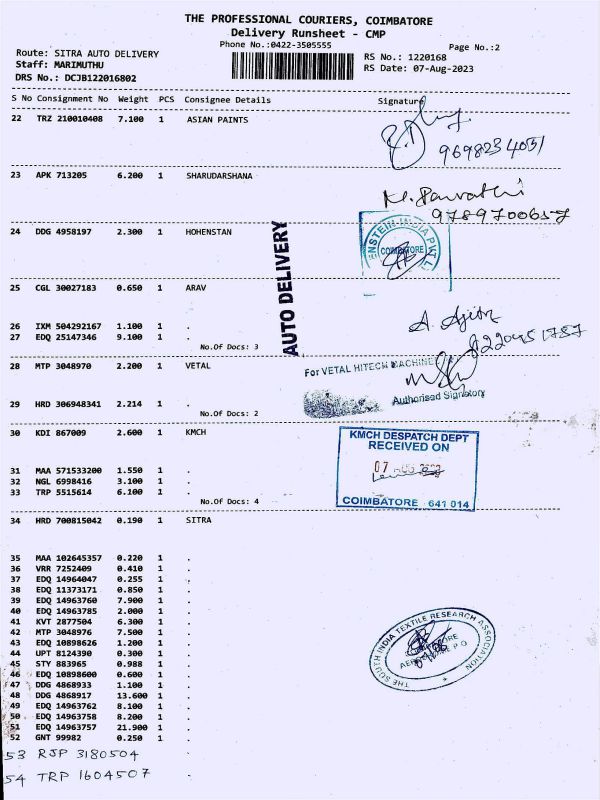 THE PROFESSIONAL COURIERS, COIMBATORE
Delivery Runsheet - CMP
Phone No.:0422-3505555
Page No.:2
Route: SITRA AUTO DELIVERY
RS No.: 1220168
Staff: MARIMUTHU
RS Date: 07-Aug-2023
DRS No.: DCJB122016802
S No Consignment No Weight PCS Consignee Details Signature
22 TRZ 210010408 7.100 1 ASIAN PAINTS
9698234051
23 APK 713205 6.200 1 SHARUDARSHANA
M. Parvathi
9789700657
24 DDG 4958197 2.300 1 HOHENSTAN
ENSTEIN INDIA PVT L
COIMBATORE
AUTO DELIVERY
25 CGL 30027183 0.650 1 ARAV
A. Ajith
8220451787
26 IXM 504292167 1.100 1 .
27 EDQ 25147346 9.100 1 .
No.Of Docs: 3
28 MTP 3048970 2.200 1 VETAL
For VETAL HITECH MACHINE
Authorised Signatory
29 HRD 306948341 2.214 1 .
No.Of Docs: 2
30 KDI 867009 2.600 1 KMCH
KMCH DESPATCH DEPT
RECEIVED ON
07
COIMBATORE 641 014
31 MAA 571533200 1.550 1 .
32 NGL 6998416 3.100 1 .
33 TRP 5515614 6.100 1 .
No.Of Docs: 4
34 HRD 700815042 0.190 1 SITRA
35 MAA 102645357 0.220 1 .
36 VRR 7252409 0.410 1 .
37 EDQ 14964047 0.255 1 .
38 EDQ 11373171 0.850 1 .
39 EDQ 14963760 7.900 1 .
40 EDQ 14963785 2.000 1 .
41 KVT 2877504 6.300 1 .
42 MTP 3048976 7.500 1 .
43 EDQ 10898626 1.200 1 .
44 UPT 8124390 0.300 1 .
45 STY 883965 0.988 1 .
46 EDQ 10898600 0.600 1 .
47 DDG 4868933 1.100 1 .
48 DDG 4868917 13.600 1 .
49 EDQ 14963762 8.100 1 .
50 EDQ 14963758 8.200 1 .
51 EDQ 14963757 21.900 1 .
52 GNT 99982 0.250 1 .
THE SOUTH INDIA TEXTILE RESEARCH ASSOCIATION
P O
53 RJP 3180504
54 TRP 1604507